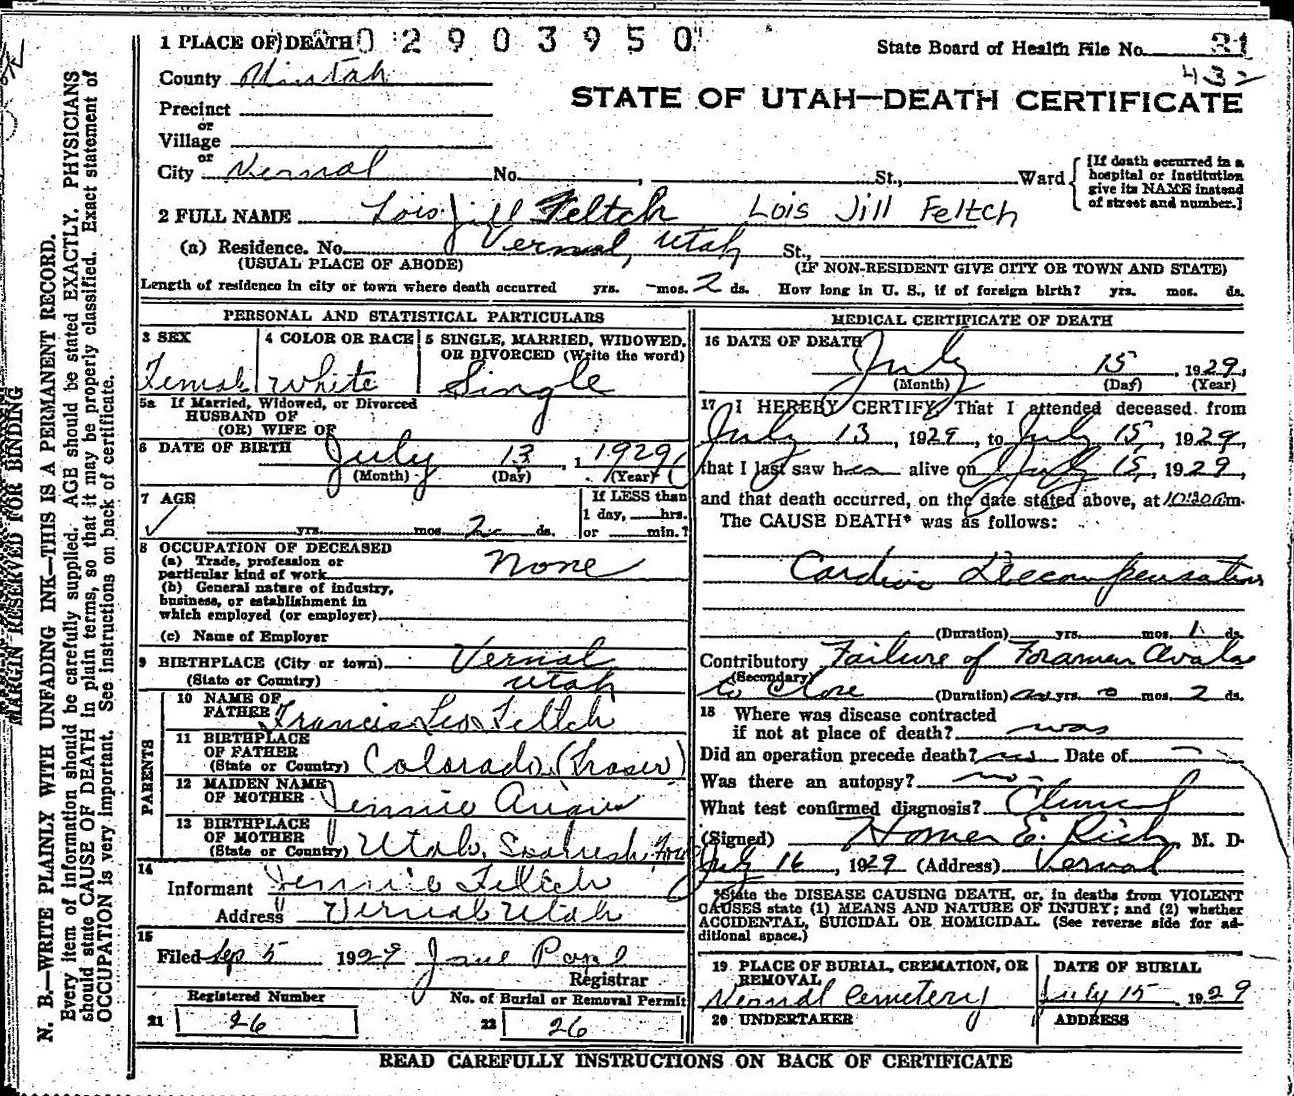 1 PLACE OF DEATH 0 2 9 0 3 9 5 0
State Board of Health File No. 31
432
County Uintah
STATE OF UTAH—DEATH CERTIFICATE
Precinct
or
Village
or
City Vernal No. , St., Ward
[If death occurred in a
hospital or institution
give its NAME instead
of street and number.]
2 FULL NAME Lois Jill Feltch Lois Jill Feltch
(a) Residence. No. Vernal, Utah St.,
(USUAL PLACE OF ABODE) (IF NON-RESIDENT GIVE CITY OR TOWN AND STATE)
Length of residence in city or town where death occurred yrs. - mos. 2 ds. How long in U. S., if of foreign birth? yrs. mos. ds.
PERSONAL AND STATISTICAL PARTICULARS
3 SEX 4 COLOR OR RACE 5 SINGLE, MARRIED, WIDOWED,
OR DIVORCED (Write the word)
Female White Single
5a If Married, Widowed, or Divorced
HUSBAND OF
(OR) WIFE OF
6 DATE OF BIRTH July 13, 1929
(Month) (Day) (Year)
7 AGE If LESS than
1 day, hrs.
yrs. mos. 2 ds. or min.?
8 OCCUPATION OF DECEASED
(a) Trade, profession or
particular kind of work None
(b) General nature of industry,
business, or establishment in
which employed (or employer)
(c) Name of Employer
9 BIRTHPLACE (City or town) Vernal
(State or Country) Utah
PARENTS
10 NAME OF
FATHER Francis Leo Feltch
11 BIRTHPLACE
OF FATHER
(State or Country) Colorado (Fraser)
12 MAIDEN NAME
OF MOTHER Jennie Angus
13 BIRTHPLACE
OF MOTHER
(State or Country) Utah, Spanish Fork
14
Informant Jennie Feltch
Address Vernal Utah
15
Filed Sep 5 1929
Registrar
Registered Number No. of Burial or Removal Permit
21 26 22 26
MEDICAL CERTIFICATE OF DEATH
16 DATE OF DEATH July 15, 1929,
(Month) (Day) (Year)
17 I HEREBY CERTIFY, That I attended deceased from
July 13, 1929, to July 15, 1929,
that I last saw her alive on July 15, 1929,
and that death occurred, on the date stated above, at 10:30 m.
The CAUSE DEATH* was as follows:
Cardiac Decompensation
(Duration) yrs. mos. 1 ds.
Contributory Failure of Foramen Ovale
(Secondary)
to Close (Duration) yrs. 0 mos. 2 ds.
18 Where was disease contracted
if not at place of death? was
Did an operation precede death? no Date of
Was there an autopsy? no
What test confirmed diagnosis? Clinical
(Signed) Homer E. Rich, M. D.
July 16, 1929 (Address) Vernal
*State the DISEASE CAUSING DEATH, or, in deaths from VIOLENT
CAUSES state (1) MEANS AND NATURE OF INJURY; and (2) whether
ACCIDENTAL, SUICIDAL OR HOMICIDAL. (See reverse side for ad-
ditional space.)
19 PLACE OF BURIAL, CREMATION, OR
REMOVAL
Vernal Cemetery
DATE OF BURIAL
July 15, 1929
20 UNDERTAKER ADDRESS
READ CAREFULLY INSTRUCTIONS ON BACK OF CERTIFICATE
MARGIN RESERVED FOR BINDING
N. B.—WRITE PLAINLY WITH UNFADING INK—THIS IS A PERMANENT RECORD.
Every item of information should be carefully supplied. AGE should be stated EXACTLY. PHYSICIANS
should state CAUSE OF DEATH in plain terms, so that it may be properly classified. Exact statement of
OCCUPATION is very important. See instructions on back of certificate.